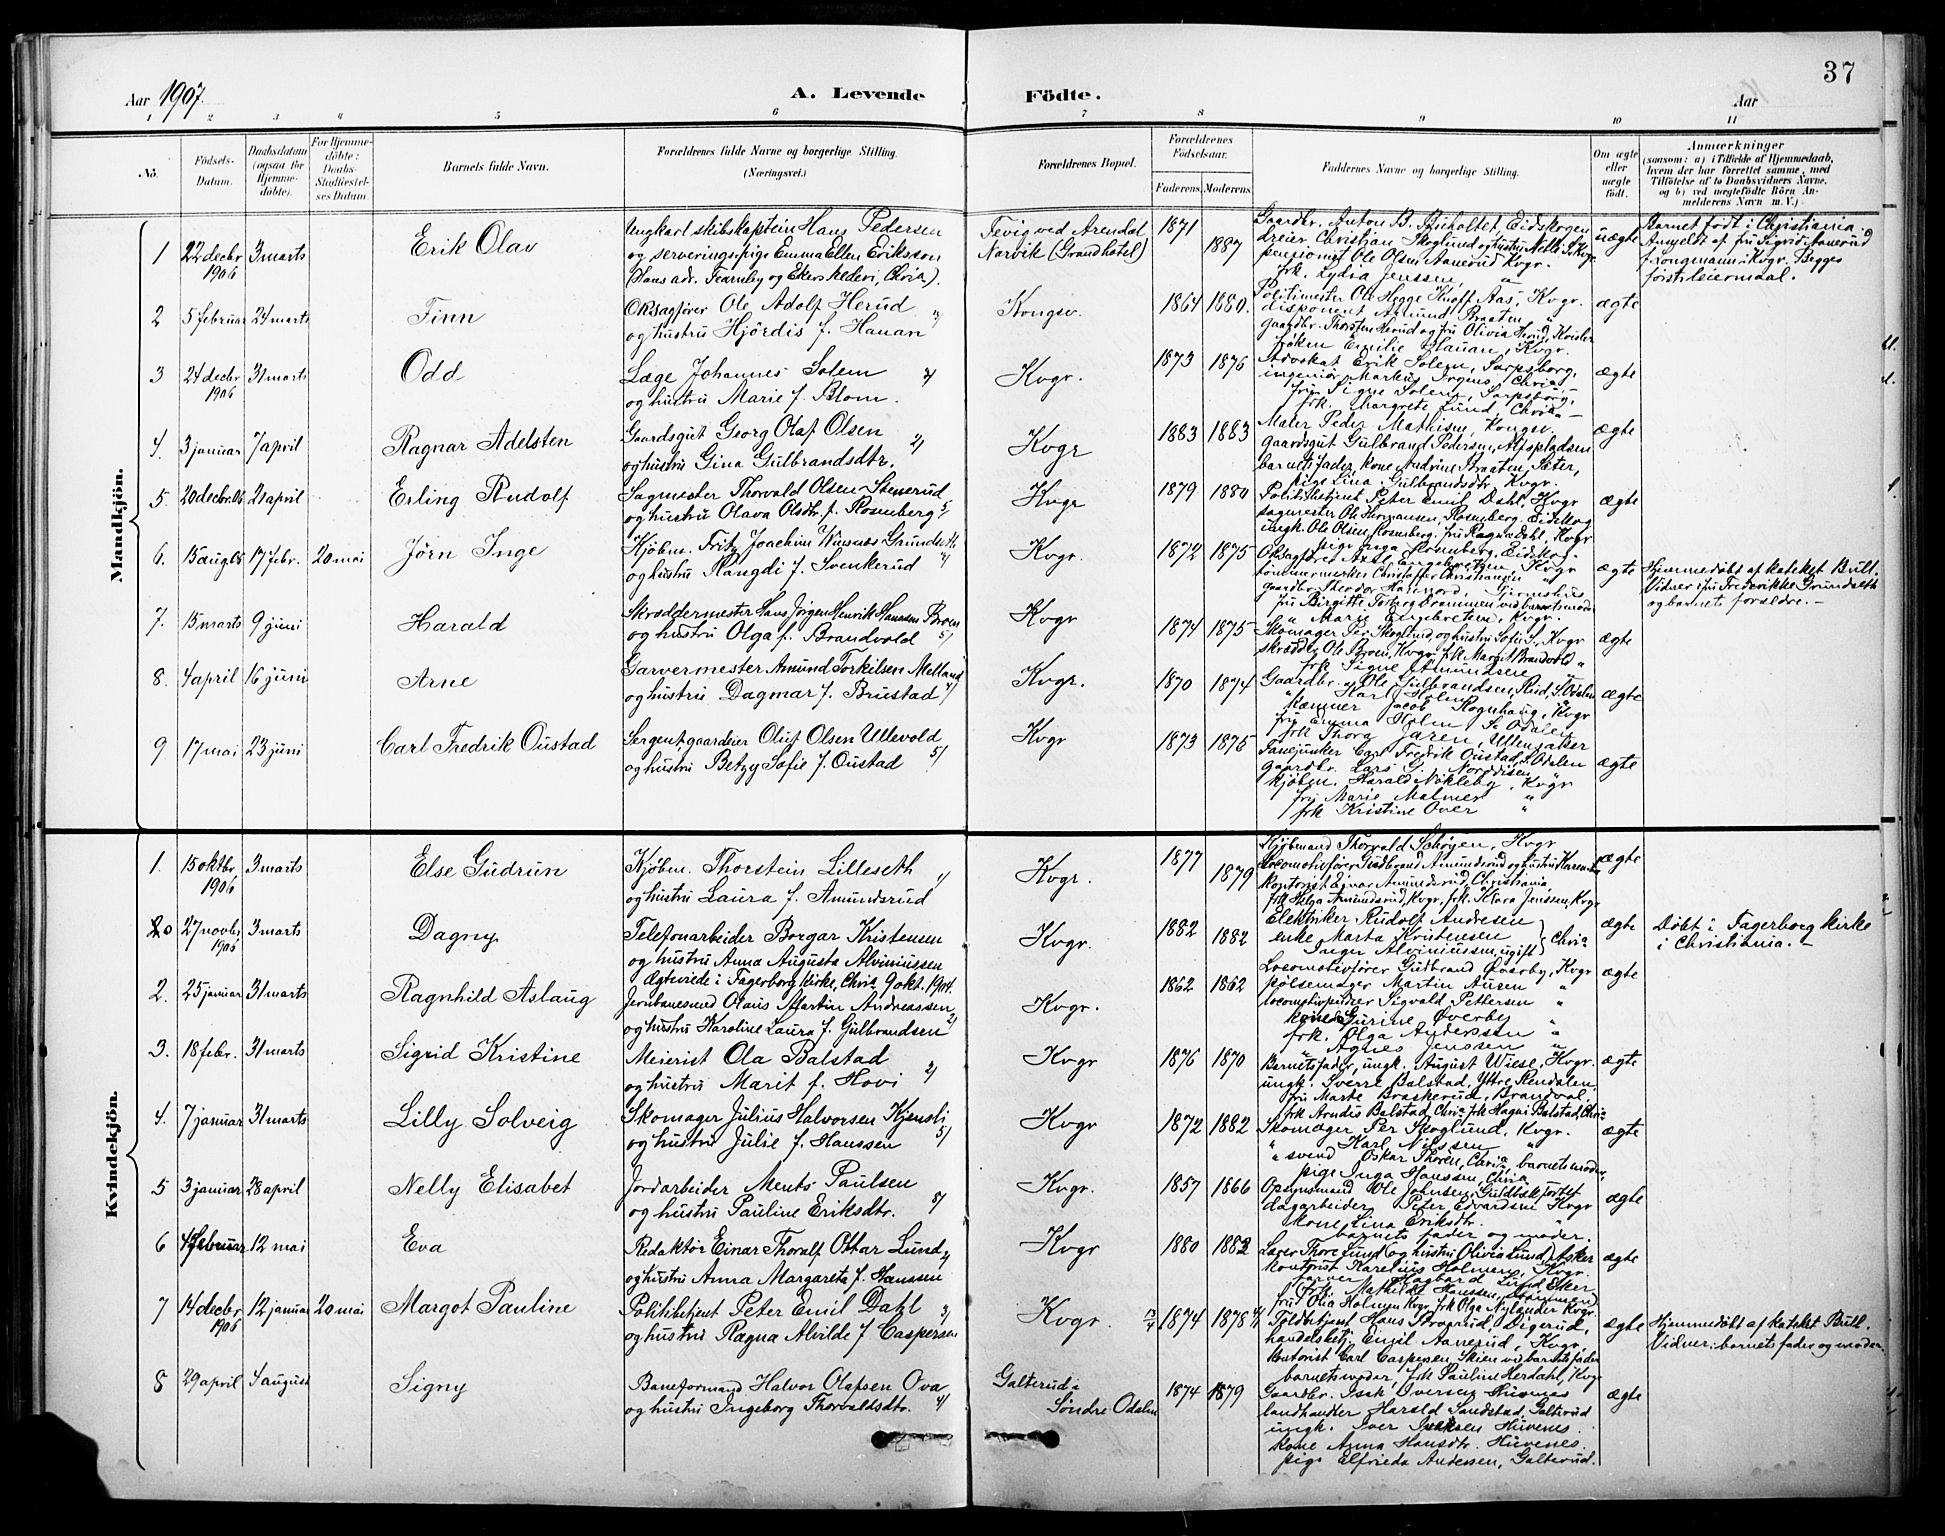 37
Aar 1907. A. Levende Födte. Aar
1 2 3 4 5 6 7 8 9 10 11
No. Födsels-Datum. Daabsdatum (ogsaa for Hjemme-döbte). For Hjemme-döbte: Daabs-Stadfæstel-ses Datum. Barnets fulde Navn. Forældrenes fulde Navne og borgerlige Stilling. (Næringsvei.) Forældrenes Bopæl. Forældrenes Födselsaar. Faderens. Moderens. Faddernes Navne og borgerlige Stilling. Om ægte eller uægte födt. Anmærkninger (saasom: a) i Tilfælde af Hjemmedaab, hvem der har forrettet samme, med Tilföielse af to Daabsvidners Navne, og b) ved uægtefödte Börn An-melderens Navn m. V.)
Mandkjön.
1 22 decbr 1906 3 marts Erik Olav
Ungkarl skibskaptein Hans Pedersen
og serveringspige Emma Ellen Eriksson
(Hans adr. Fearnley og Eker
Fevig ved Arendal
Narvik (Grandhotel)
1871 1887
Gaardbr. Anton B.
dreier Christian Skoglund og hustru
pensionist Ole Olsen Aanerud Kvgr.
frk. Lydia Jenssen "
uægte
Barnet født i Christiania.
Anmeldt af fru Sigrid Aanerud
Kvgr. Begges
første leiermaal.
2 5 februar 24 marts Finn
O.R.sagfører Ole Adolf Herud
og hustru Hjördis f. Hauan
Kongsv.
1864 1880.
Politimester Ole Hegge Knoff Aas, Kvgr.
disponent Amund Braaten "
gaardbr. Thorsten Herud og fru Olivia Herud,
frøken Emilie Hauan, Kvgr.
ægte
3 24 decbr 1906 31 marts Odd
Læge Johannes Solem
og hustru Marie f. Blom.
Kvgr.
1873 1876
Advokat Erik Solem, Sarpsborg,
ingeniør Markus Irgens, Chria
fru Signe Solem, Sarpsborg,
frk. Margrete Lund, Chria
ægte
4. 3 januar 7 april Ragnar Adelsten
Gaardsgut Georg Olaf Olsen
og hustru Gina Gulbrandsdtr.
Kvgr
1883 1883
Maler Peder Mathisen, Kongsv.
gaardsgut Gulbrand Pedersen,
barnets fader, kone Andrine Braaten, Sæter,
pige Lina Gulbrandsdtr, Kvgr.
ægte
5 20 decbr. 06 21 april Erling Rudolf
Sagmester Thorvald Olsen Stenerud
og hustru Olava Olsdtr. f. Rosenberg
Kvgr
1879 1880
Politibetjent Peter Emil Dahl, Kvgr
sagmester Ole Hermansen, Rosenberg, Eidskog
ungk. Ole Olsen Rosenberg, fru Ragna Dahl, Kvgr
pige Inga Rosenberg, Eidskog
ægte
6. 15 aug 06 17 febr. 20 mai Jörn Inge
Kjöbm. Fritz Joachim Grundseth
og hustru Rangdi f. Svenkerud
Kvgr.
1872 1875
O.R.sagfører Axel Engebretsen, Kvgr
tømmermerker Christoffer Christiansen "
gaardbr. Theodor
fru Birgitte Drammen ved barnets moder
" Marie Engebretsen, Kvgr.
ægte
Hjemmedøbt af kateket Bull.
Vidner: fru Frederikke Grundseth
og barnets forældre.
7. 15 marts 9 juni Harald
Skræddermester Hans Jørgen Henrik Hanssen Broen
og hustru Olga f. Brandvold
Kvgr
1874 1875
Skomager Per Skoglund og hustru Sofie S., Kvgr
skrædder Ole Broen, Kvgr. frk. Margit Brandvold "
frk Signe Amundsen "
ægte
8. 4 april 16 juni Arne
Garvermester Amund Torkilsen Melland
og hustru Dagmar f. Brustad
Kvgr.
1870 1874
Gaardbr. Ole Gulbrandsen Rud, S. Odalen
" Karl Holm "
Kæmner Jacob Rognhaug, Kvgr
fru Emma Holm S. Odalen
frk Thora Jaren, Ullensaker
ægte
9 17 mai 23 juni Carl Fredrik Oustad
Sergent, gaardeier Oluf Olsen Ullevold
og hustru Betzy Sofie f. Oustad
Kvgr
1873 1875
Fanejunker Carl Fredrik Oustad, S. Odalen
gaardbr. Lars G. Norddisen "
kjöbm. Harald Nökleby, Kvgr
fru Marie Malmer "
frk Kristine Over "
ægte
Kvindekjön.
1. 15 oktbr 1906 3 marts Else Gudrun
Kjöbm. Thorstein Lilleseth
og hustru Laura f. Amundsrud
Kvgr.
1877 1879
Kjöbmand Thorvald Schøyen, Kvgr
Locomotivfører Gudbrand Amundsrud og hustru Karen
kontorist Amundsrud, Christiania,
frk Helga Amundsrud, Kvgr, frk. Klara Jenssen, Kvgr
ægte
27 novbr 1906 3 marts Dagny
Telefonarbeider Borgar Kristensen
og hustru Anna Augusta Alviniussen
Ægteviede i Fagerborg kirke, Chria 9 okt. 1904.
Kvgr.
1882 1882
Elektriker Rudolf Andresen
enke Marta Kristensen
Alviniussen, ugift
Chria
ægte
Døbt i Fagerborg kirke
i Christiania.
2. 25 januar 31 marts Ragnhild Aslaug
Jernbanesmed Olaus Martin Andreassen
og hustru Karoline Laura f. Gulbrandsen
Kvgr.
1862 1862
Locomotivfører Gudbrand Øverby, Kvgr
pølsemager Martin Auren "
locomotivpudser Sigvald Pettersen "
kone Gurine Øverby
frk. Olga Anderssen "
" Agnes Jenssen "
ægte
3. 18 febr. 31 marts Sigrid Kristine
Meierist Ola Balstad
og hustru Marit f. Hovi
Kvgr
1876 1870
Barnets fader, ungk. August Wiese, Kvgr.
ungk. Sverre Balstad, Yttre Rendalen,
fru Marte Braskerud, Brandval,
frk Arndis Balstad, Chria, frk Magni Balstad, Chria
ægte
4. 7 januar 31 marts Lilly Solveig
Skomager Julius Halvorsen Kjensli
og hustru Julie f. Hanssen
Kvgr
1872 1882
Skomager Per Skoglund, Kvgr.
" Karl Nilssen "
" svend Oskar Thoren, Chria, barnets moder,
pige Inga Hanssen, Chria
ægte
5 3 januar 28 april Nelly Elisabet
Jordarbeider Ments Paulsen
og hustru Pauline Eriksdtr.
Kvgr.
1857 1866
Opsynsmand Ole Johnsen,
dagarbeider Peter Edvardsen Kvgr
kone Lina Eriksdtr. "
barnets fader og moder.
ægte
6 4 februar 12 mai Eva
Redaktør Einar Thoralf Ottar Lund
og hustru Anna Margareta f. Hanssen
Kvgr
1880 1882
Lærer Thore Lund og hustru Olivia Lund, Asker
kontorist Karelius Holmen, Kvgr.
farver Hagbard Lund, Eker
frk. Mathilde Hanssen, Drammen
fru Olia Holmen Kvgr, frk Olga Nylander Kvgr.
ægte
7 14 decbr 1906 12 januar 20 mai Margot Pauline
Politibetjent Peter Emil Dahl
og hustru Ragna Alvilde f Caspersen
Kvgr.
1874 1878
Toldbetjent Hans Digerud,
handelsbetj. Emil Aanerud, Kvgr.
kontorist Carl Caspersen, Skien ved barnets fader
barnets moder, frk Pauline Herdahl, Kvgr
ægte
Hjemmedøbt af kateket Bull.
Vidner: barnets fader og moder.
8 29 april 4 august Signy
Baneformand Halvor Olafsen Ova
og hustru Ingeborg Thorvaldsdtr.
Galterud i
Søndre Odalen
1874 1879
Gaardbr. Isak Iversen Huvenes
landhandler Harald Sandstad, Galterud
ungk. Iver Isaksen Huvenes
kone Anna Hansdtr. Huvenes.
pige Elfrieda Andersen, Galterud.
ægte